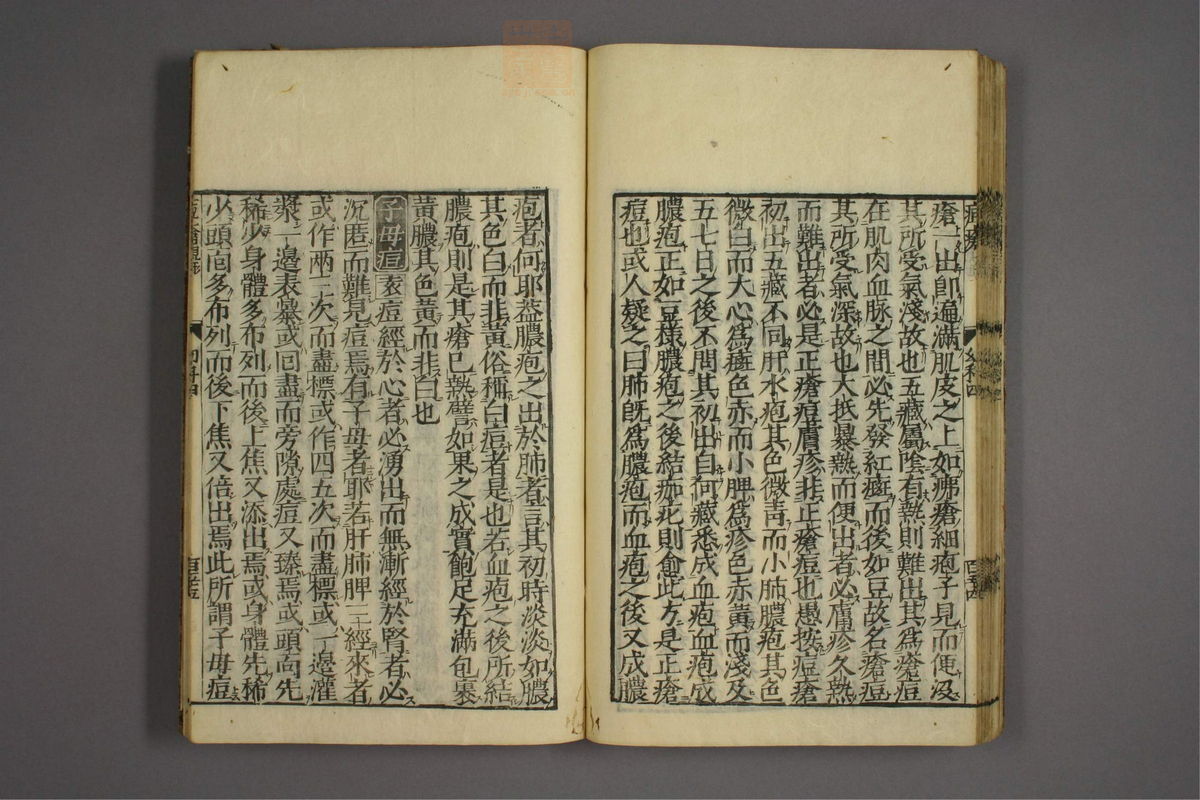 瘡一出卽遍滿肌皮之上如疿瘡細疱子見而便沒
其所受氣淺故也五藏屬陰有熱則難出其爲瘡痘
在肌肉血脉之間必先發紅癍而後如豆故名瘡痘
其所受氣深故也大抵暴熱而便出者必膚疹久熱
而難出者必是正瘡痘膚疹非正瘡痘也愚按痘瘡
初出五藏不同肝水疱其色微青而小肺膿疱其色
微白而大心爲癍色赤而小脾爲疹色赤黃而淺及
五七日之後不問其初出自何藏悉成血疱血疱成
膿疱正如豆樣膿疱之後結痂疕則愈此方是正瘡
痘也或人疑之曰肺旣爲膿疱而血疱之後又成膿
疱者何耶蓋膿疱之出於肺者言其初時淡淡如膿
其色白而非黃俗稱白痘者是也若血疱之後所結
膿疱則是其瘡已熟譬如果之成實飽足充滿包裹
黃膿其色黃而非白也
子母痘 袁痘經於心者必湧出而無漸經於腎者必
沉匿而難見痘焉有子母者耶若肝肺脾三經來者
或作兩三次而盡標或作四五次而盡標或一邊灌
漿一邊表暴或囘盡而旁隙處痘又臻焉或頭向先
稀少身體多布列而後上焦又添出焉或身體先稀
少頭面多布列而後下焦又倍出焉此所謂子母痘
幼科四